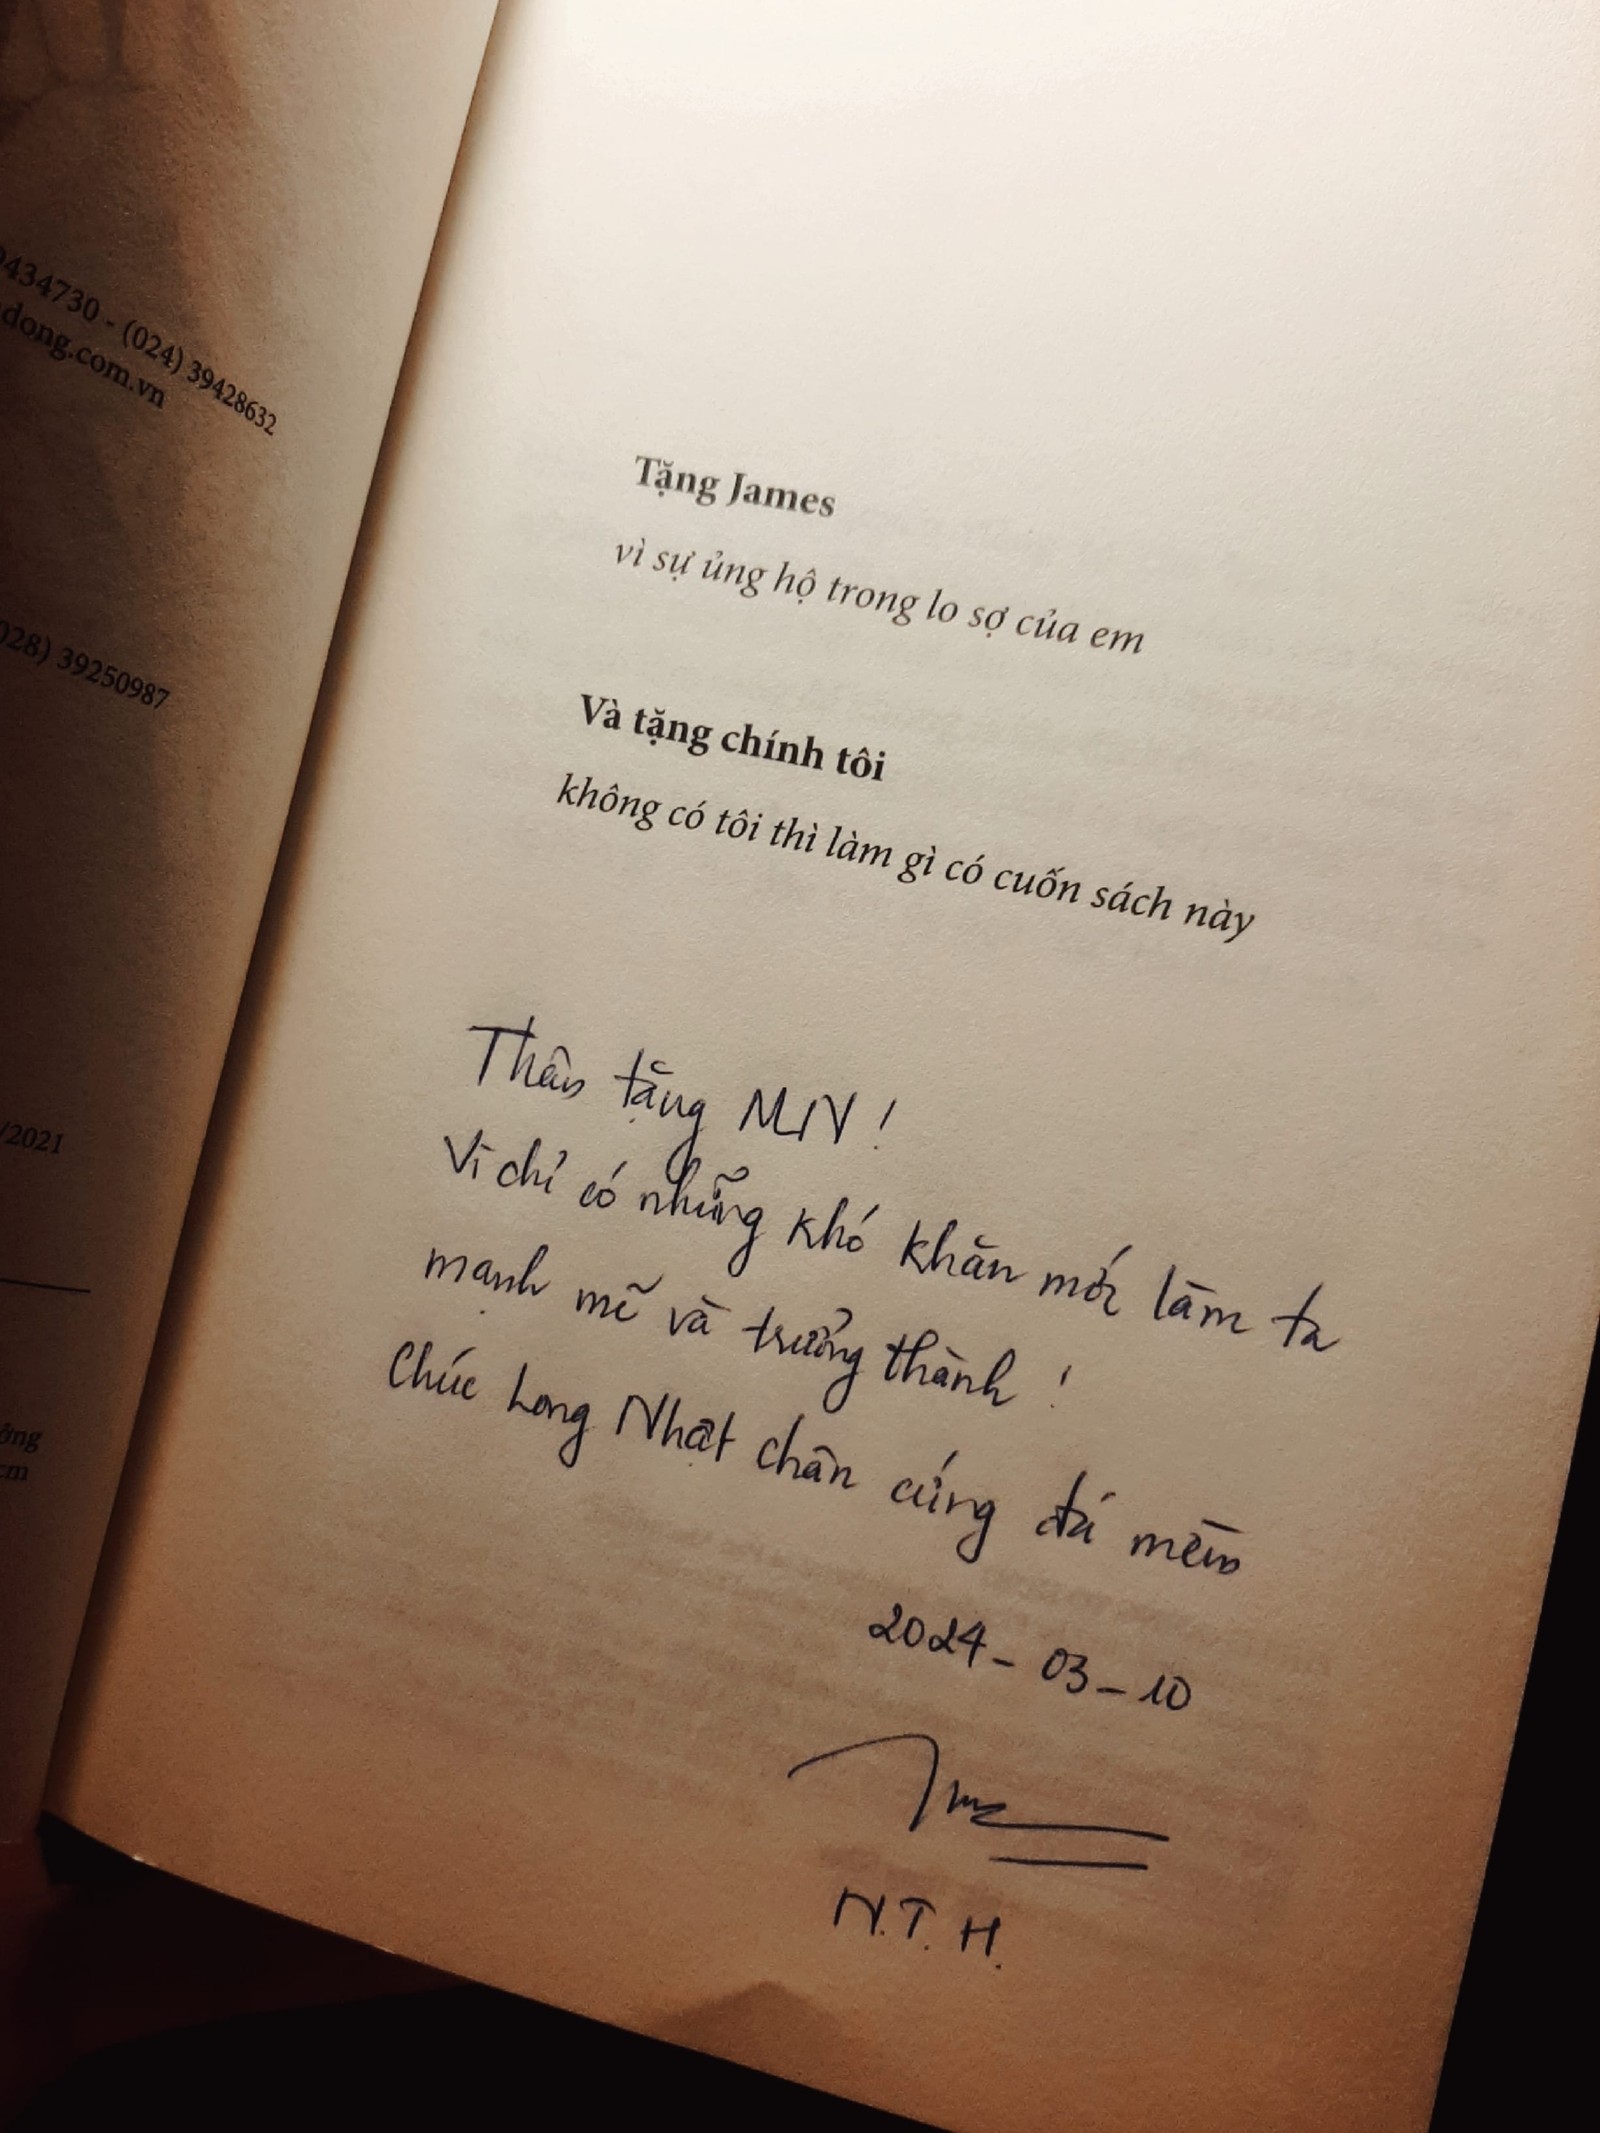 9434730 - (024) 39428632
dong.com.vn
028) 39250987
/2021
ởng
cm
Tặng James
vì sự ủng hộ trong lo sợ của em
Và tặng chính tôi
không có tôi thì làm gì có cuốn sách này
Thân tặng MIN!
Vì chỉ có những khó khăn mới làm ta
mạnh mẽ và trưởng thành!
Chúc Long Nhật chân cứng đá mềm
2024-03-10
N.T.H.